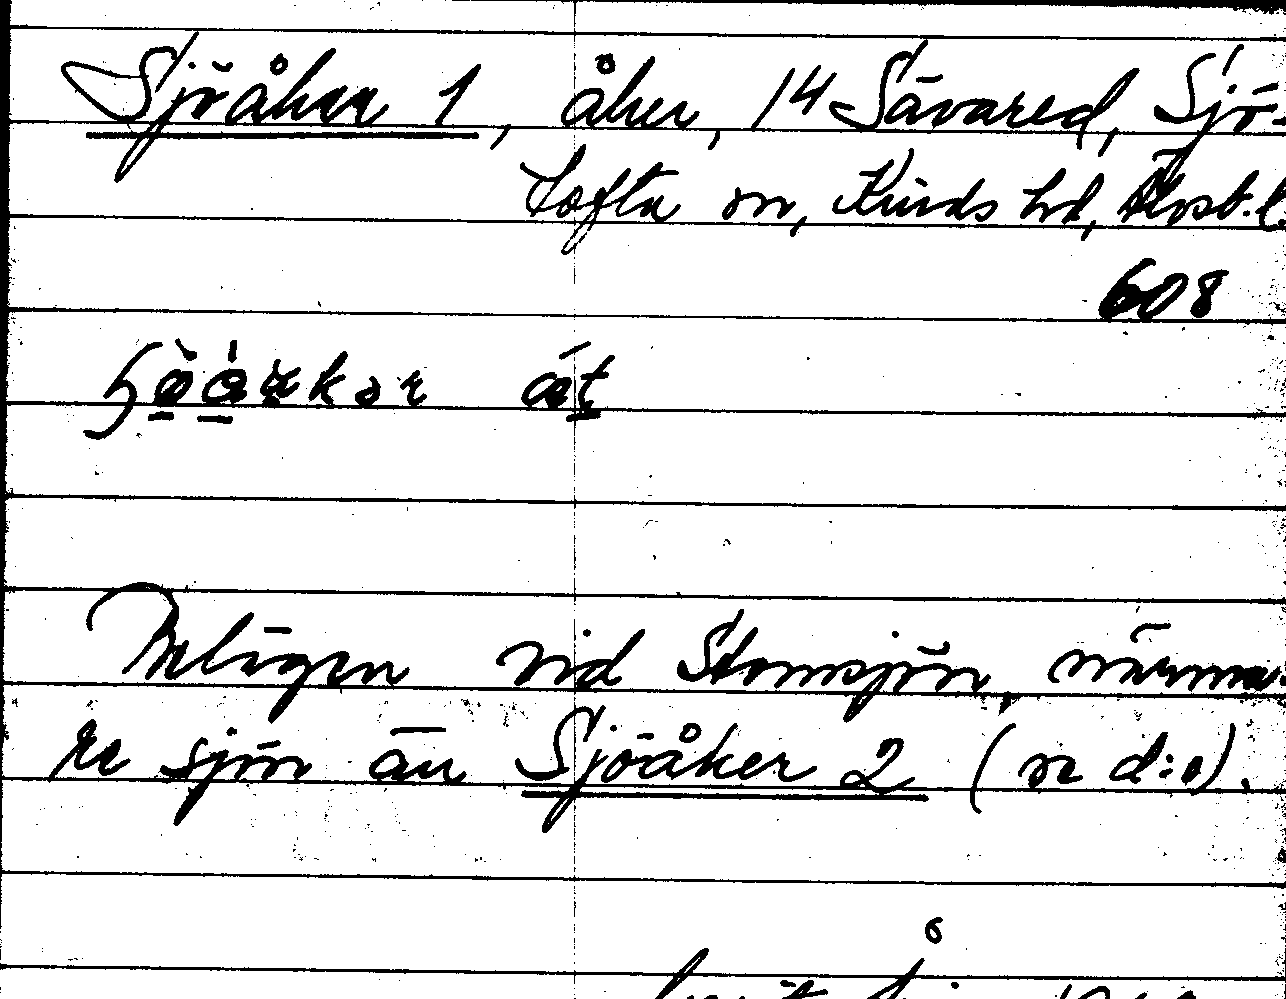 Sjöåker 1, åker, 14 Sävared, Sjö-
tofta sn, Kinds hd, Älvsb. l.
608
Belägen vid Stomsjön, närma-
re sjön än Sjöåker 2 (se d:o).